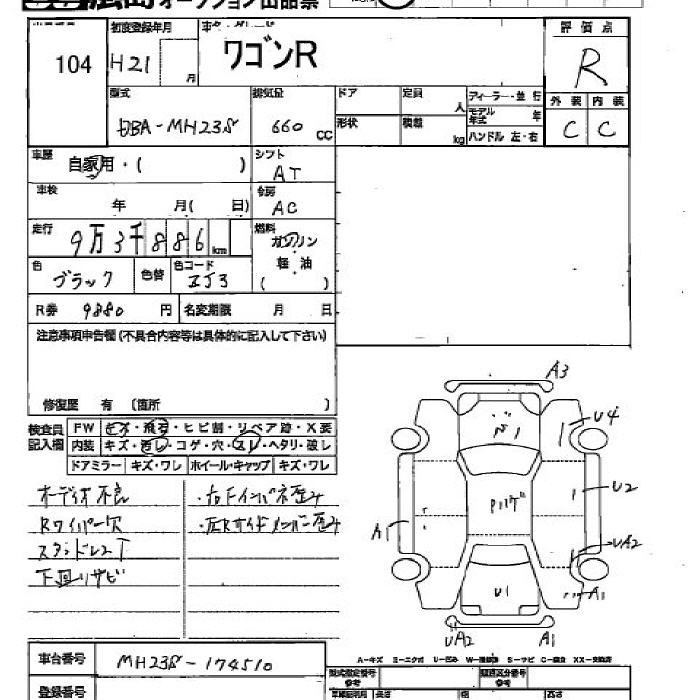 オークション出品票
104
初度登録年月
H21
月
ワゴンR
評価点
R
型式
DBA-MH23S
排気量
660
cc
ドア
定員
人
形状
積載
kg
ディーラー・並行
モデル年式
年
ハンドル 左・右
外装
内装
C
C
車歴
自家用・( )
シフト
AT
車検
年 月( 日)
冷房
AC
走行
9万3千886
km
燃料
ガソリン
・
軽・油
( )
色
ブラック
色替
色コード
ZJ3
R券
9880
円
名変期限
月 日
注意事項申告欄(不具合内容等は具体的に記入して下さい)
修復歴 有 〔箇所 〕
検査員
記入欄
FW
キズ・飛石・ヒビ割・リペア跡・X要
内装
キズ・汚レ・コゲ・穴・スレ・ヘタリ・破レ
ドアミラー
キズ・ワレ
ホイール・キャップ
キズ・ワレ
オーディオ不良
・右Fインパネ歪み
Rワイパー欠
・左Rサイドメンバー歪み
下廻リサビ
A3
U4
U2
A1
UA2
A1
U1
UA2
A1
車台番号
MH23S-174510
登録番号
型式指定番号
参考
類別区分番号
参考
長さ
幅
高さ